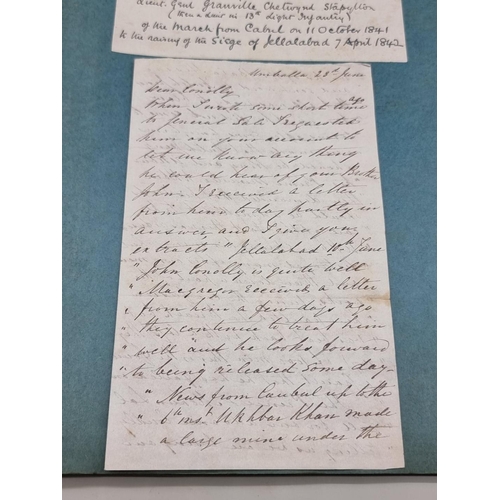 Lieut. Genl Granville Chetwynd Stapylton
(then a Lieut in 13th Light Infantry)
of the March from Cabul on 11 October 1841
to the raising of the Siege of Jellalabad 7 April 1842
Umballa 23d June
Dear Conolly
When I wrote some short time ago
to General Sale I requested
him on your account to
let me know any thing
he could hear of your Brother
John. I received a letter
from him to day partly in
answer and I give you
extracts "Jellalabad 10th June
"John Conolly is quite well
"Macgregor received a letter
" from him a few days ago
" they continue to treat him
" well "and he looks forward
"to being released some day.
" News from Caubul up to the
" 6th inst. Ukhbar Khan made
" a large mine under the